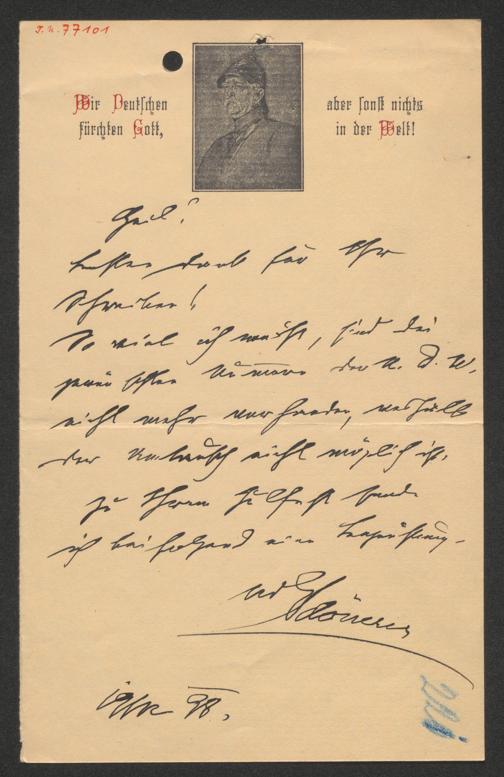 J.N. 77101
Wir Deutschen
fürchten Gott,
aber sonst nichts
in der Welt!
Heil!
Besten Dank für Ihr
Schreiben!
So viel ich weiß, sind die
gewünschten Nummern der U. D. W.
nicht mehr vorhanden, weshalb
der Umtausch nicht möglich ist.
Zu Ihrem Julfest sende
ich beifolgend eine
Schönerer
98.